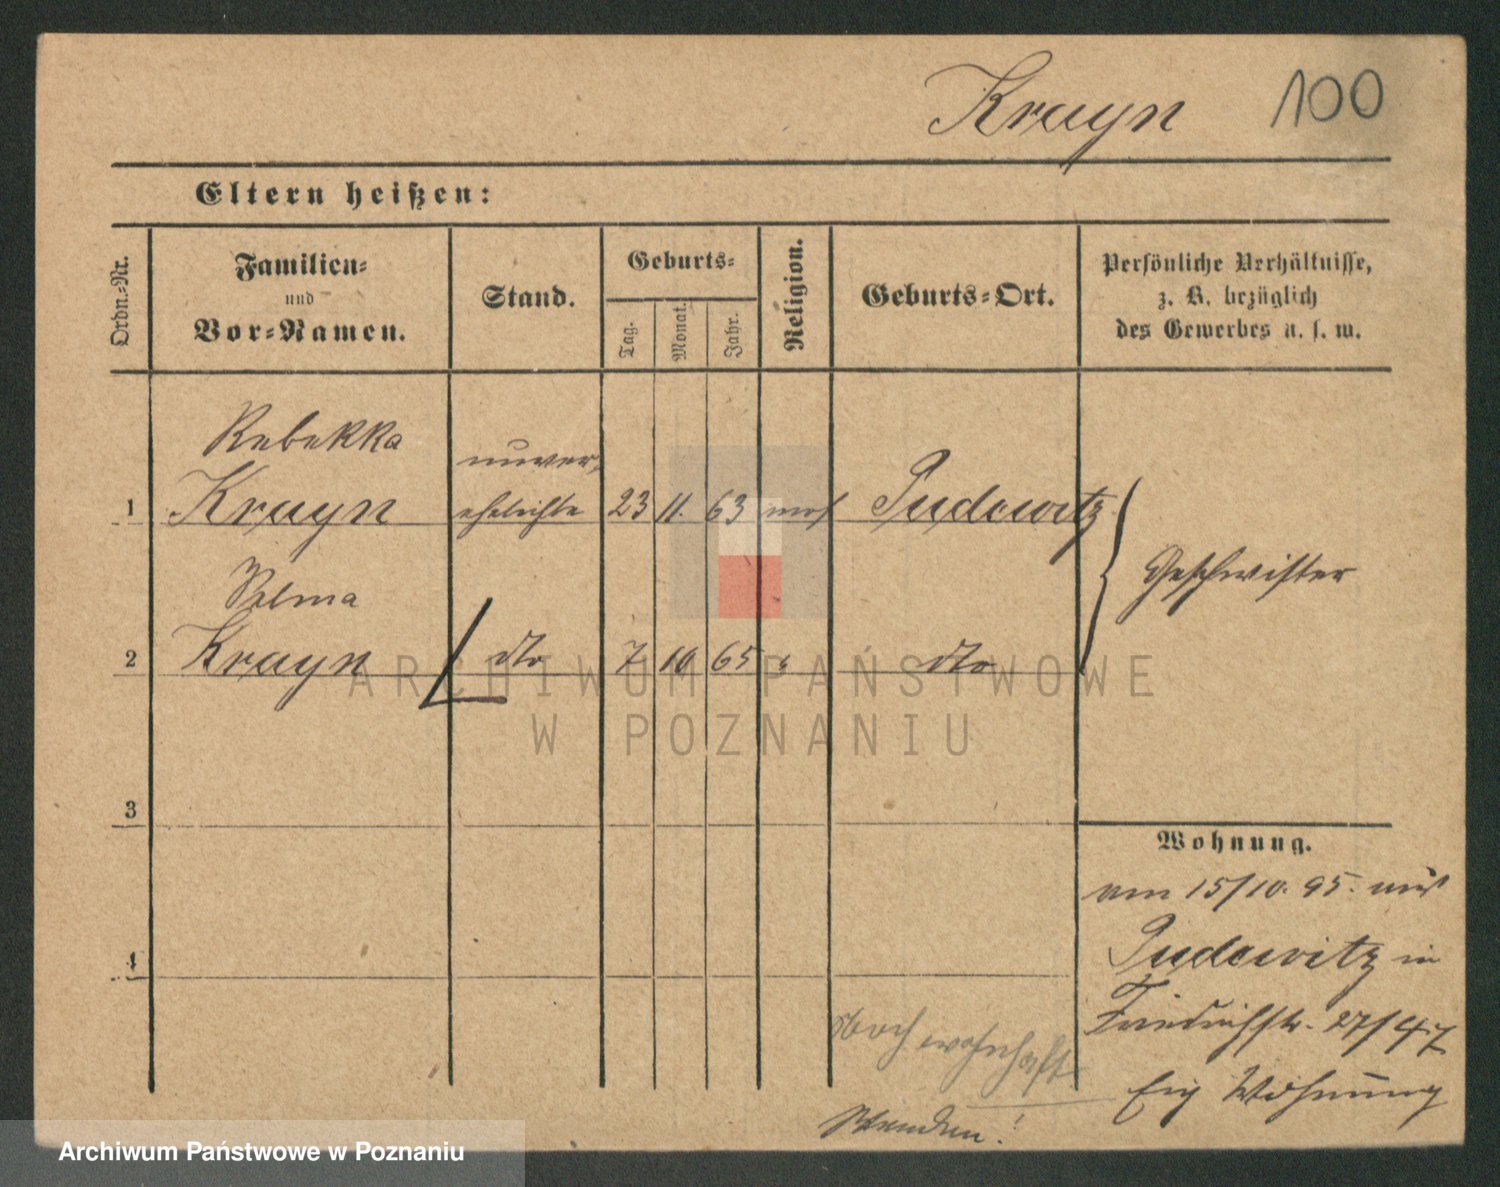 Krayn 100
Eltern heißen:
Ordn.-Nr.
Familien-
und
Vor-Namen.
Stand.
Geburts-
Tag.
Monat.
Jahr.
Religion.
Geburts-Ort.
Persönliche Verhältnisse,
z. B. bezüglich
des Gewerbes u. s. w.
Rebekka
unver,
1 Krayn ehelichte 23 11. 63 mos Pudewitz
Geschwister
Selma
2 Krayn dto 7 10 65 " dto
ARCHIWUM PAŃSTWOWE
W POZNANIU
3
Wohnung.
am 15/10. 95. aus
Pudewitz in
4
Friedrichstr. 27/47
Noch wohnhaft
Eig Wohnung
Wenden!
Archiwum Państwowe w Poznaniu